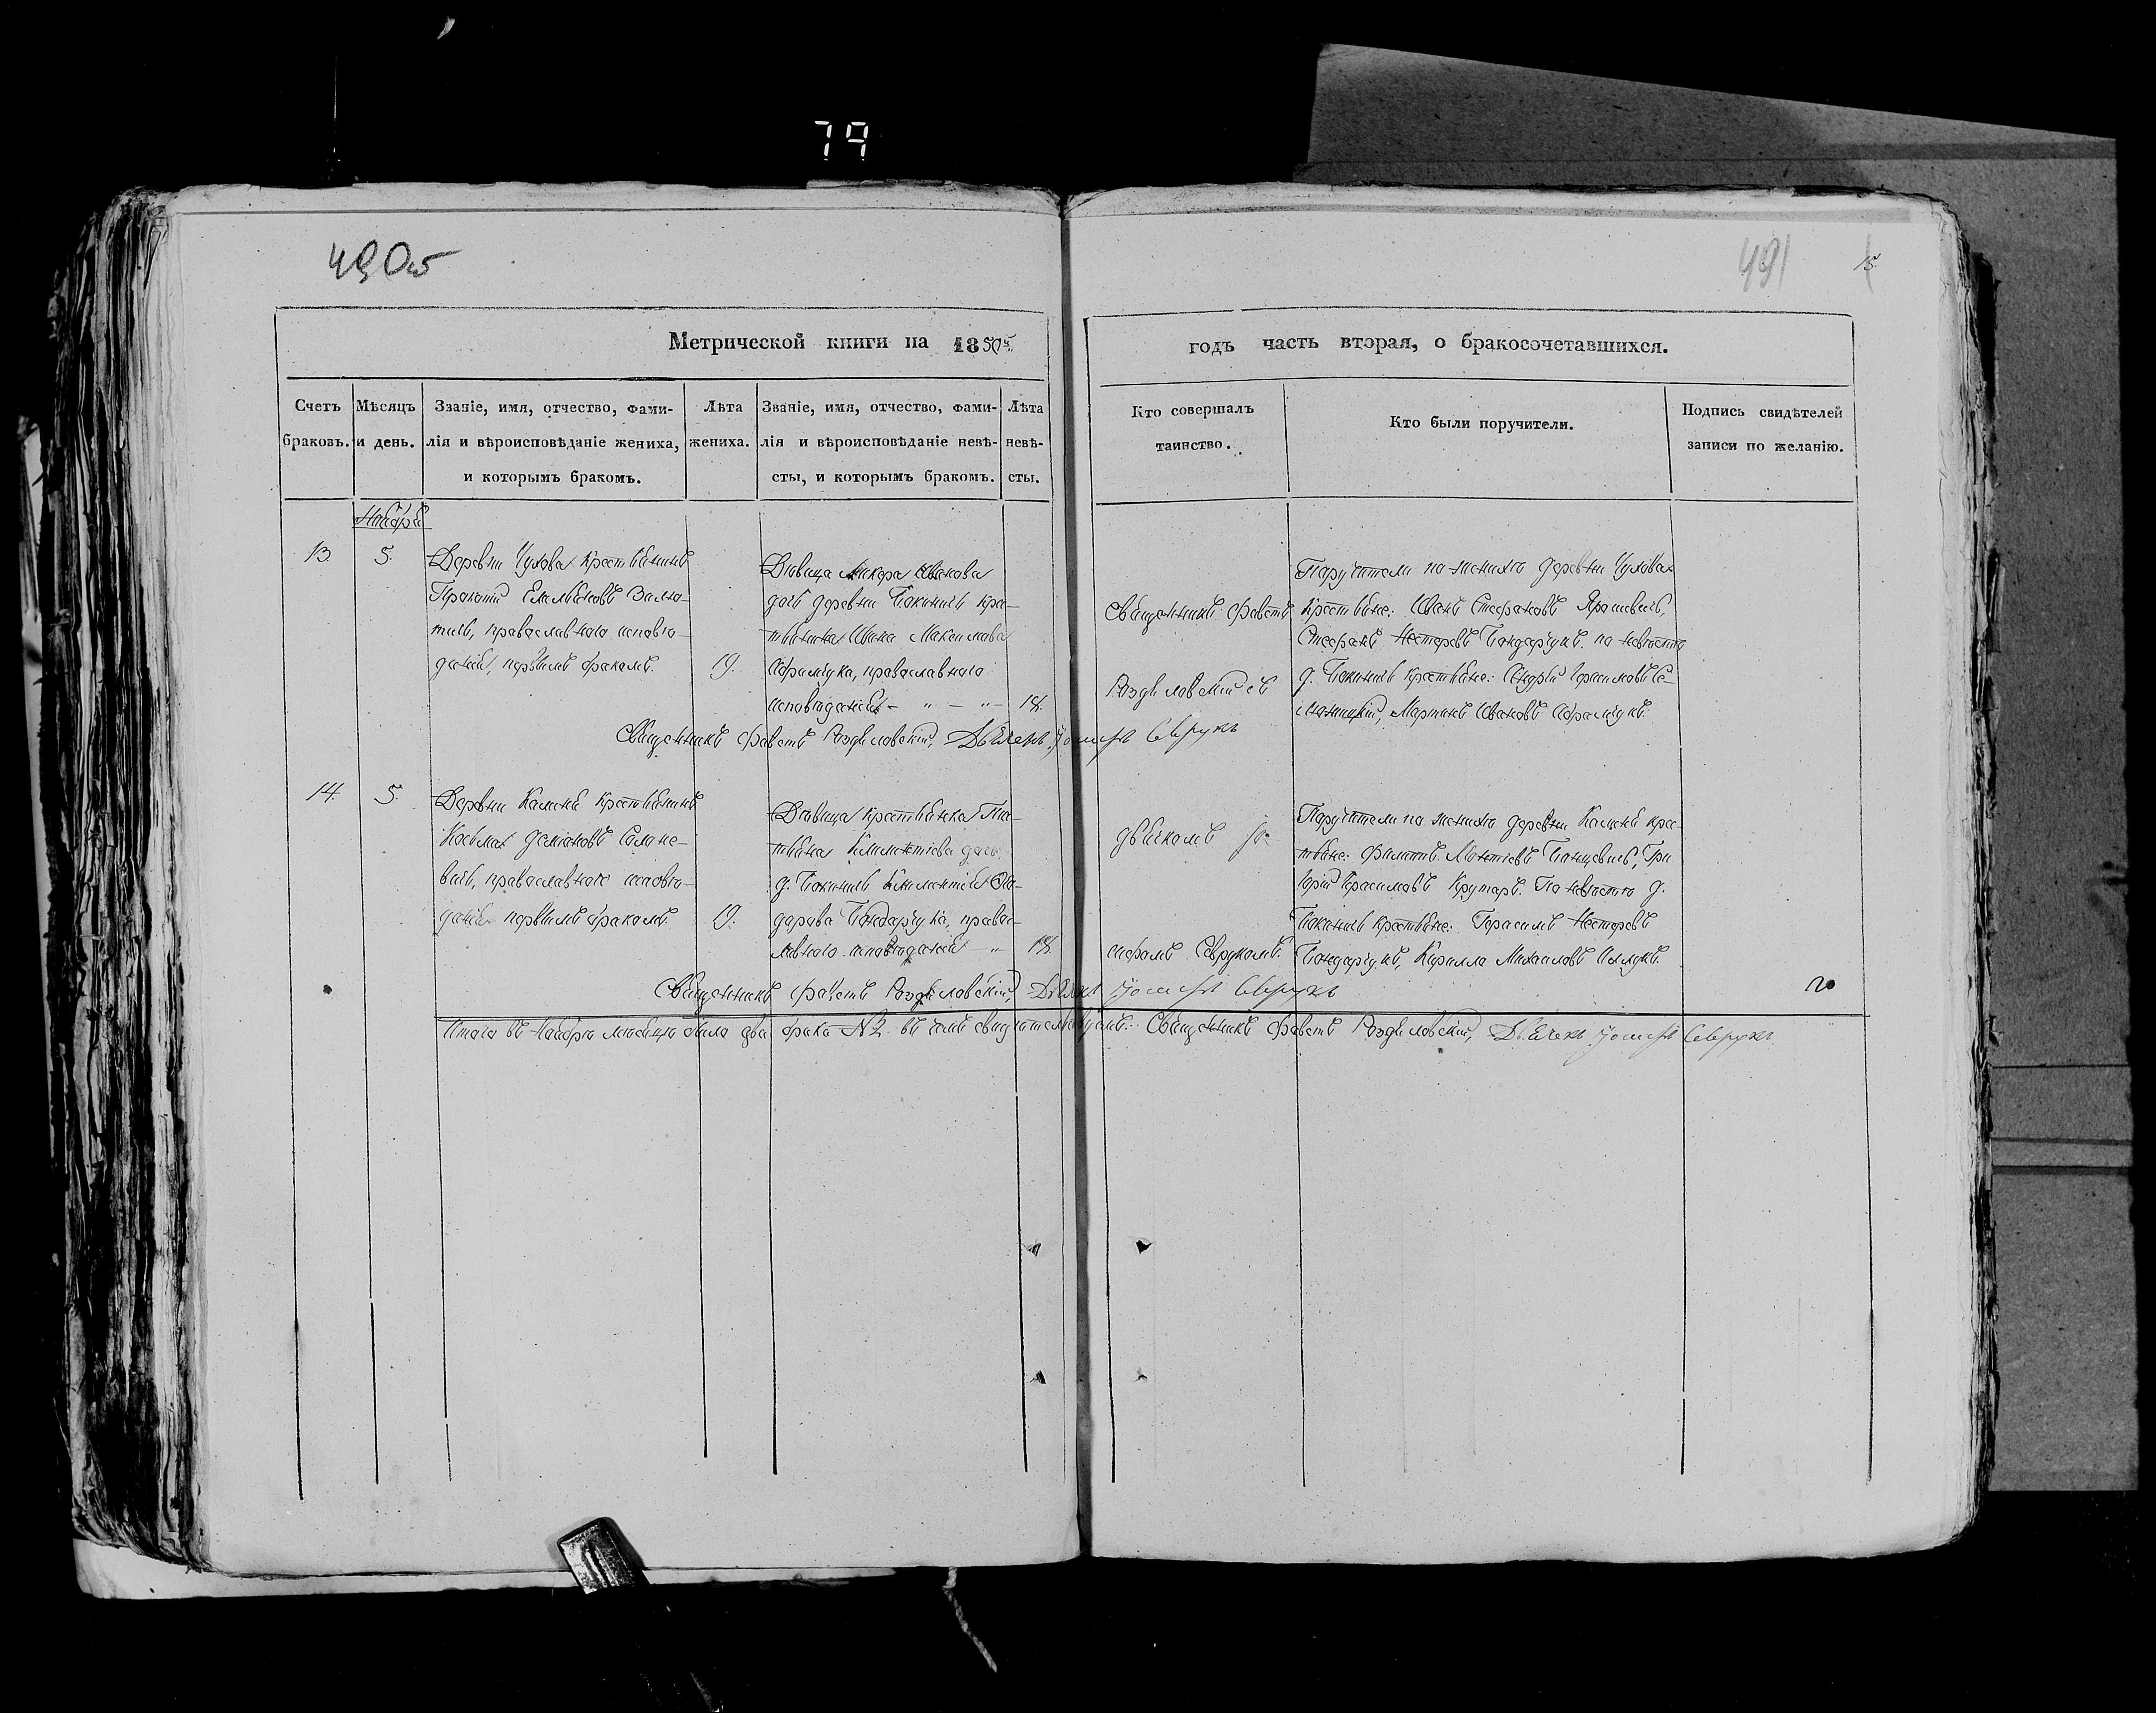 79
490об
491
15.
Метрической книги на 1850й
годъ часть вторая, о бракосочетавшихся.
Счетъ браковъ.
Мѣсяцъ и день.
Званіе, имя, отчество, фами-
лія и вѣроисповѣданіе жениха,
и которымъ бракомъ.
Лѣта
жениха.
Званіе, имя, отчество, фами-
лія и вѣроисповѣданіе невѣ-
сты, и которымъ бракомъ.
Лѣта
невѣ-
сты.
Кто совершалъ
таинство.
Кто были поручители.
Подпись свидѣтелей
записи по желанію.
Ноябрь
13. 5.
Деревни Чухова крестьянинъ
Прокопій Емельяновъ
православнаго исповѣ-
данія, первымъ бракомъ.
19.
Дѣвица Иванова
дочь деревни крес-
тьянина Ивана Максимова
Абрамчука, православнаго
исповѣданія - " - " -
18.
Священникъ Фавстъ
Раздяловскій съ
Поручители по женихѣ деревни Чухова
крестьяне: Иванъ Стефановъ Ярошевичъ,
Стефанъ Нестеровъ Бондарчукъ. по невѣстѣ
д. крестьяне: Андрей Герасимовъ Се-
Мартинъ Ивановъ Абрамчукъ.
Священникъ Фавстъ Раздяловскій, Дьячекъ Іосифъ Саврукъ
14. 5.
Деревни Камень крестьянинъ
Козьма Деміановъ
православнаго исповѣ-
данія первымъ бракомъ.
19.
Дѣвица крестьянка Та-
тьяна Климентіева дочь
д. Климентія Ѳео-
дорова Бондарчука, правос-
лавнаго исповѣданія - "
18.
дьячкомъ Іо-
сифомъ Саврукомъ.
Поручители по женихѣ деревни Камень крес-
тьяне: Филиппъ Гри-
горій Герасимовъ Крутаръ. По невѣстѣ д.
крестьяне: Герасимъ Нестеровъ
Бондарчукъ, Кирилла Михаиловъ
Священникъ Фавстъ Раздяловскій, Дьячекъ Іосифъ Саврукъ
Итого въ Ноябрѣ мѣсяцѣ было два брака №2. въ чемъ свидѣтельствуемъ: Священникъ Фавстъ Раздяловскій, Дьячекъ Іосифъ Саврукъ